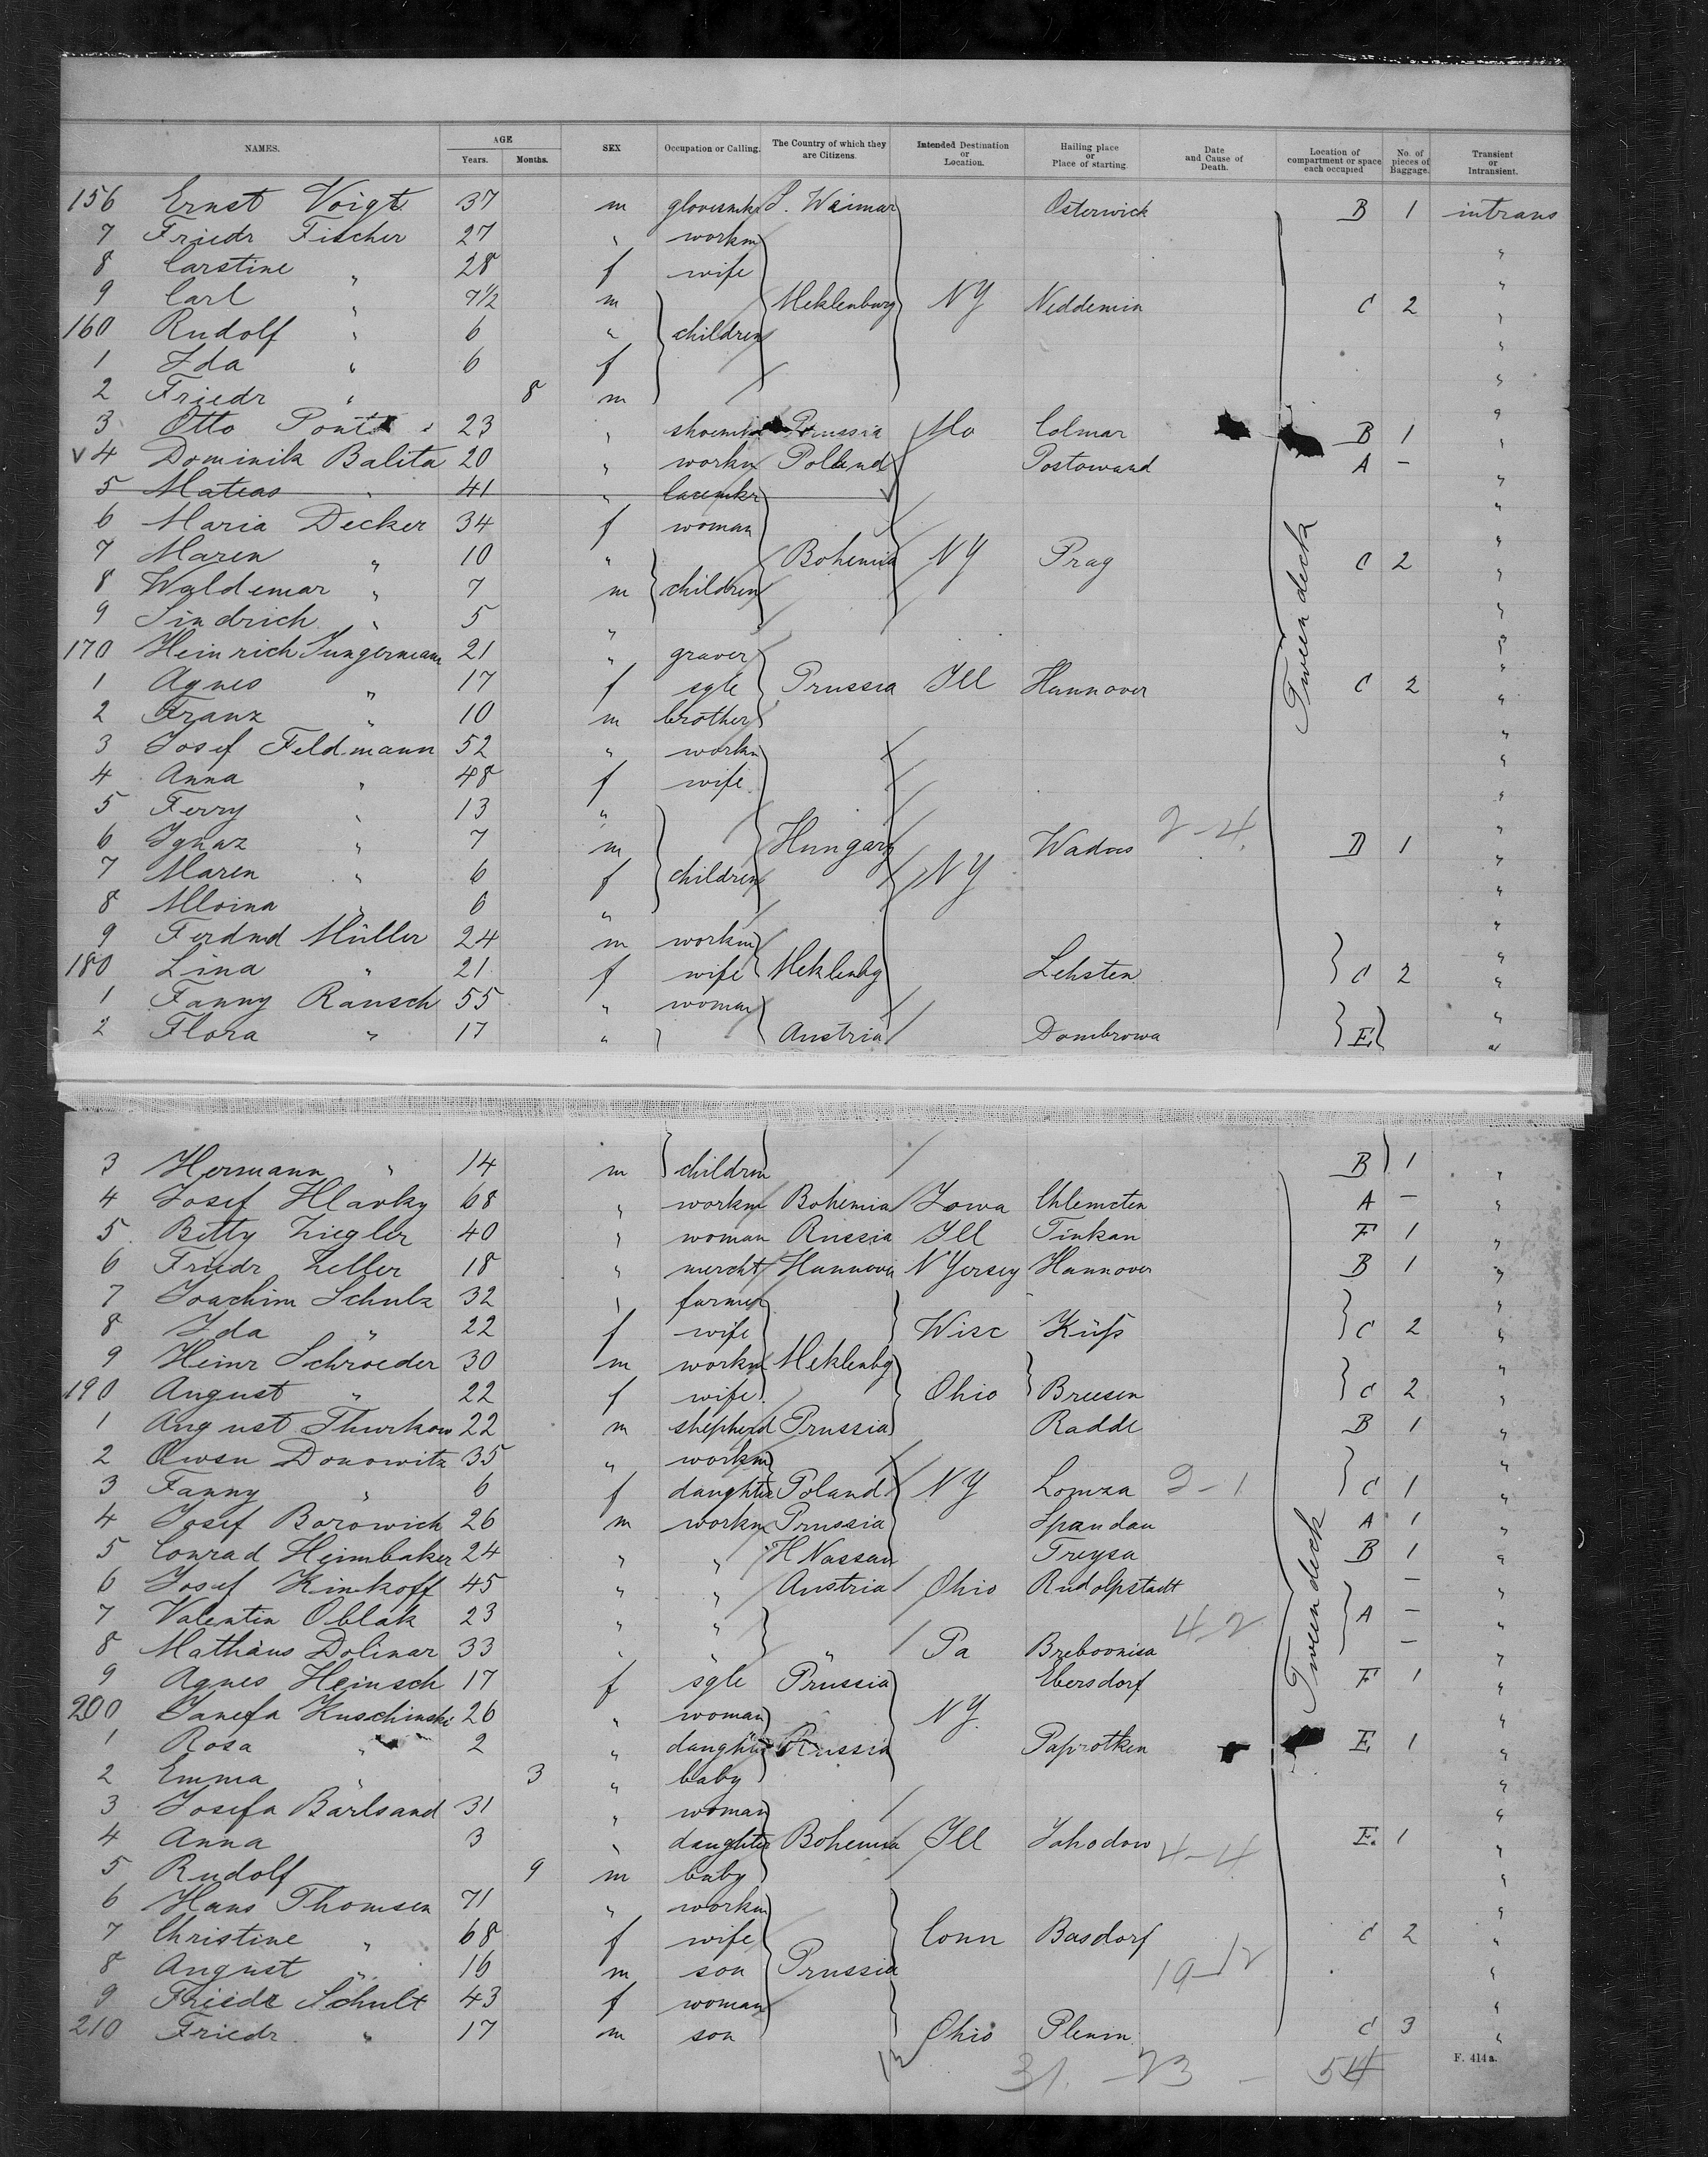 NAMES. AGE Years. Months. SEX Occupation or Calling. The Country of which they are Citizens. Intended Destination or Location. Hailing place or Place of starting. Date and Cause of Death. Location of compartment or space each occupied No. of pieces of Baggage. Transient or Intransient.
156 Ernst Voigt 37 m S. Weimar Osterwick B 1 intrans
7 Friedr Fischer 27 " workm "
8 Carstine " 28 f wife "
9 Carl " 7 1/2 m Meklenburg NY Neddemin C 2 "
160 Rudolf " 6 " children "
1 Ida " 6 f "
2 Friedr " 8 m "
3 Otto 23 " Prussia Mo Colmar B 1 "
v 4 Dominik Balita 20 " workm Poland A - "
5 Mateas " 41 " "
6 Maria Decker 34 f woman "
7 Maren " 10 " Bohemia NY Prag C 2 "
8 Waldemar " 7 m children "
9 Jindrich " 5 " "
170 Heinrich Jungermann 21 " graver "
1 Agnes " 17 f sgle Prussia Ill Hannover C 2 "
2 Franz " 10 m brother "
3 Josef Feldmann 52 " workm "
4 Anna " 48 f wife "
5 Ferry " 13 " "
6 Ignaz " 7 m Hungary Wadas 2-4 D 1 "
7 Maren " 6 f children NY "
8 " 6 " "
9 Ferdnd Müller 24 m workm "
180 Lina " 21 f wife Meklenbg Lehsten C 2 "
1 Fanny Rausch 55 " woman "
2 Flora " 17 " Austria Dombrowa E "
Tween deck
3 Hermann " 14 m children B 1 "
4 Josef Hlavky 68 " workm Bohemia Iowa A - "
5 Betty Ziegler 40 " woman Russia Ill Tinkan F 1 "
6 Friedr Zeller 18 " mercht Hannover N Yersey Hannover B 1 "
7 Joachim Schulz 32 " farmer "
8 Ida " 22 f wife Wisc C 2 "
9 Heinr Schroeder 30 m workm Meklenbg "
190 August " 22 f wife Ohio Breesen C 2 "
1 August Thurkow 22 m shepherd Prussia Radde B 1 "
2 Donowitz 35 " workm "
3 Fanny " 6 f daughter Poland NY Lomza 2-1 C 1 "
4 Josef Borowich 26 m workm Prussia Spandau A 1 "
5 Conrad Heimbaker 24 " " H Nassau Treysa B 1 "
6 Josef Kinkoff 45 " " Austria Ohio Rudolpstadt - "
7 Valentin Oblak 23 " " 4-2 A - "
8 Mathäus Dolinar 33 " " Pa - "
9 Agnes Heinsch 17 f sgle Prussia Ebersdorf F 1 "
200 Kuschinski 26 " woman NY. "
1 Rosa " 2 " daughter Russia Paprotken E 1 "
2 Emma " 3 " baby "
3 Josefa Barlsand 31 " woman "
4 Anna 3 " daughter Bohemia Ill Jahodow 4-4 E. 1 "
5 Rudolf 9 m baby "
6 Hans Thomsen 71 " workm "
7 Christine " 68 f wife Conn Basdorf C 2 "
8 August " 16 m son Prussia 19-12 "
9 Friedr Schult 43 f woman "
210 Friedr " 17 m son Ohio Plenin C 3 "
Tween deck
31. - 23 - 54
F. 414 a.